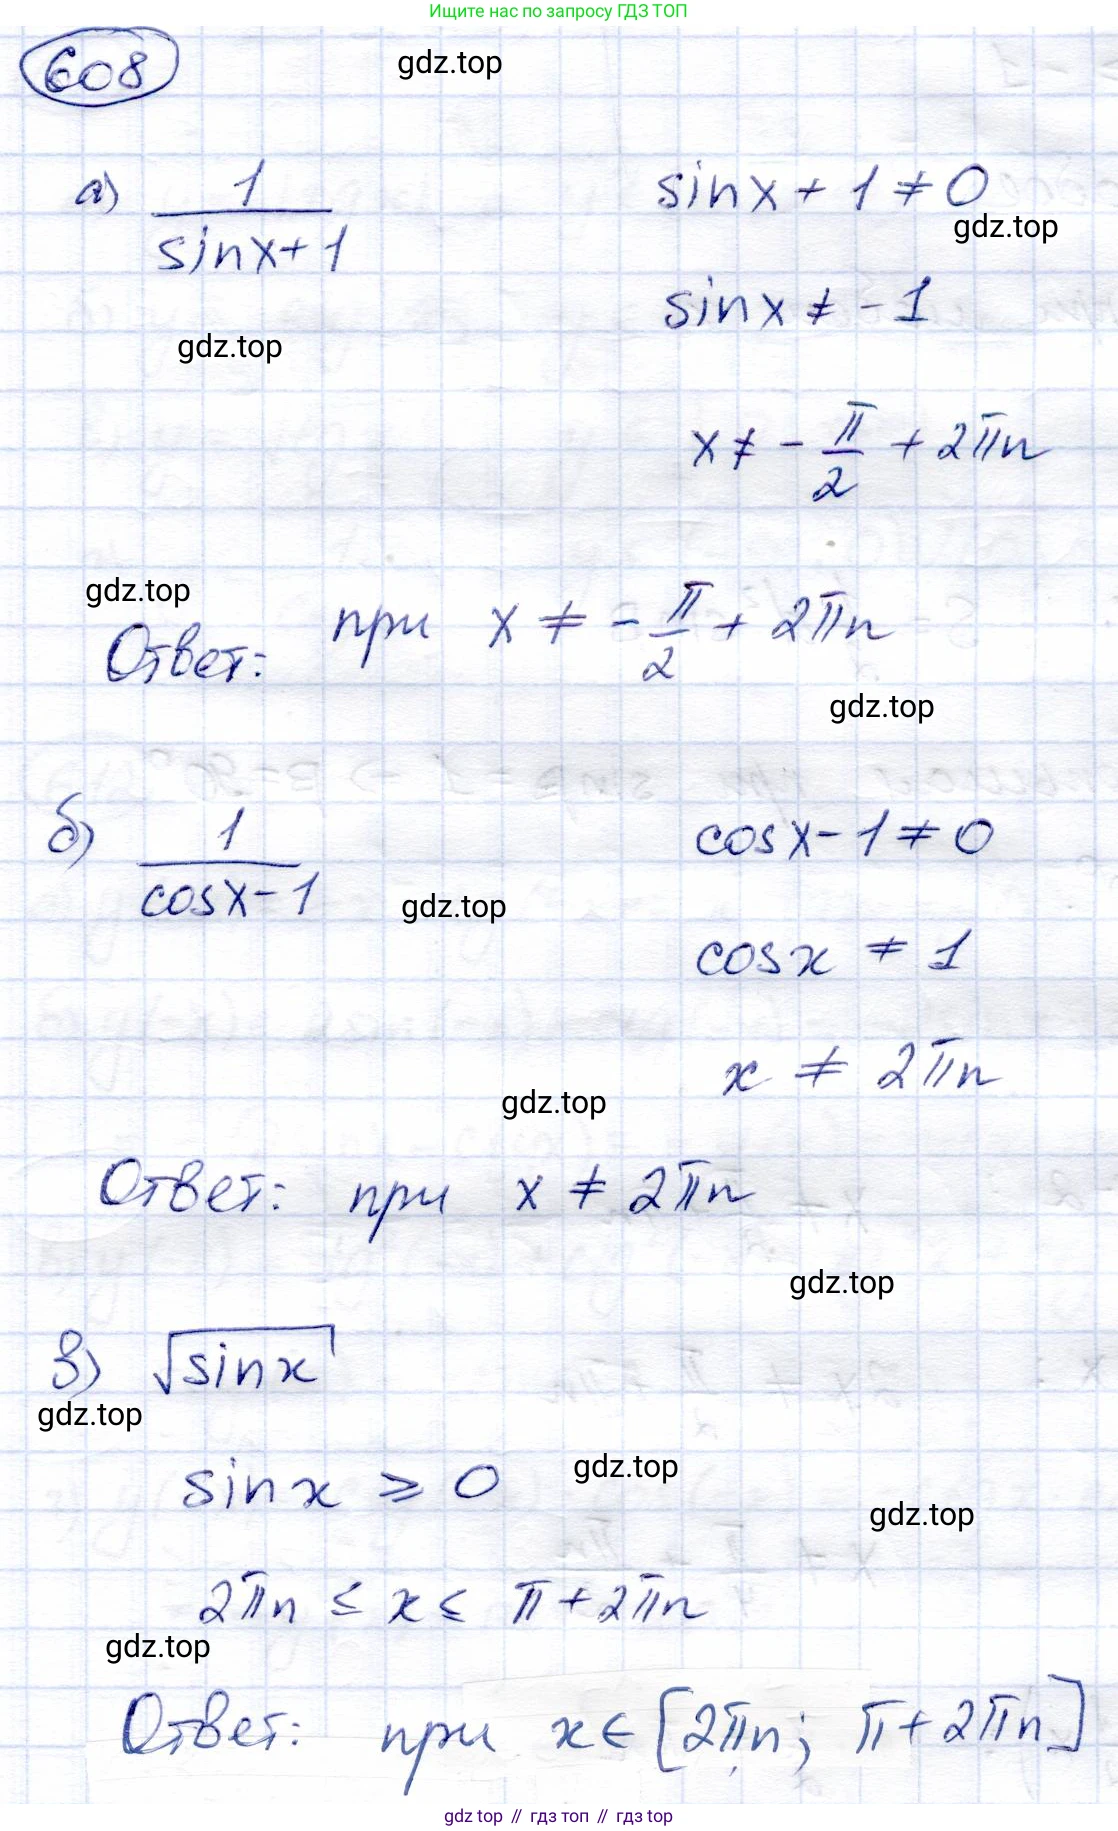 Ищите нас по запросу ГДЗ ТОП
608
gdz.top
а) 1/(sinx+1)
sinx + 1 ≠ 0
gdz.top
sinx ≠ -1
gdz.top
x ≠ - π/2 + 2πn
gdz.top
Ответ: при x ≠ - π/2 + 2πn
gdz.top
б) 1/(cosx-1)
cosx - 1 ≠ 0
gdz.top
cosx ≠ 1
x ≠ 2πn
gdz.top
Ответ: при x ≠ 2πn
gdz.top
в) √sinx
gdz.top
sinx ⩾ 0
gdz.top
gdz.top
2πn ≤ x ≤ π + 2πn
gdz.top
Ответ: при x ∈ [2πn; π + 2πn]
gdz top // гдз топ // гдз top